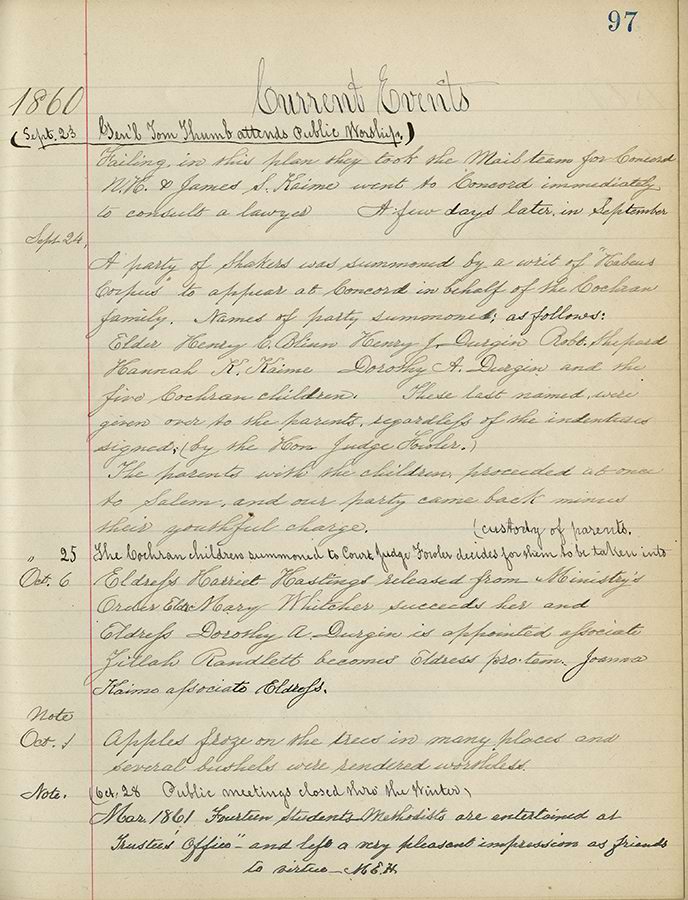 97
Current Events
1860
(Sept. 23 Gen'l Tom Thumb attends Public Worship.)
Failing in this plan they took the Mail team for Concord
N.H. & James S. Kaime went to Concord immediately
to consult a lawyer A few days later, in September
Sept 24,
A party of Shakers was summoned by a writ of "Habeus
Corpus" to appear at Concord in behalf of the Cochran
family. Names of party summoned; as follows:
Elder Henry C. Blinn Henry J. Durgin Robt. Shepard
Hannah K. Kaime Dorothy A. Durgin and the
five Cochran children. These last named, were
given over to the parents, regardless of the indentures
signed; (by the Hon. Judge Fowler.)
The parents with the children, proceeded at once
to Salem, and our party came back minus
their youthful charge. (custody of parents.
" 25 The Cochran children summoned to Court Judge Fowler decides for them to be taken into
Oct. 6 Eldress Harriet Hastings released from Ministry's
Order Eldr Mary Whitcher succeeds her and
Eldress Dorothy A Durgin is appointed associate
Zillah Randlett becomes Eldress pro. tem. Joanna
Kaime associate Eldress.
Note
Oct. 1 Apples froze on the trees in many places and
several bushels were rendered worthless.
Note. (Oct. 28 Public meetings closed thro the Winter)
Mar. 1861 Fourteen Students Methodists are entertained at
Trustees' Office" and left a very pleasant impression as friends
to virtue — M.E.H.